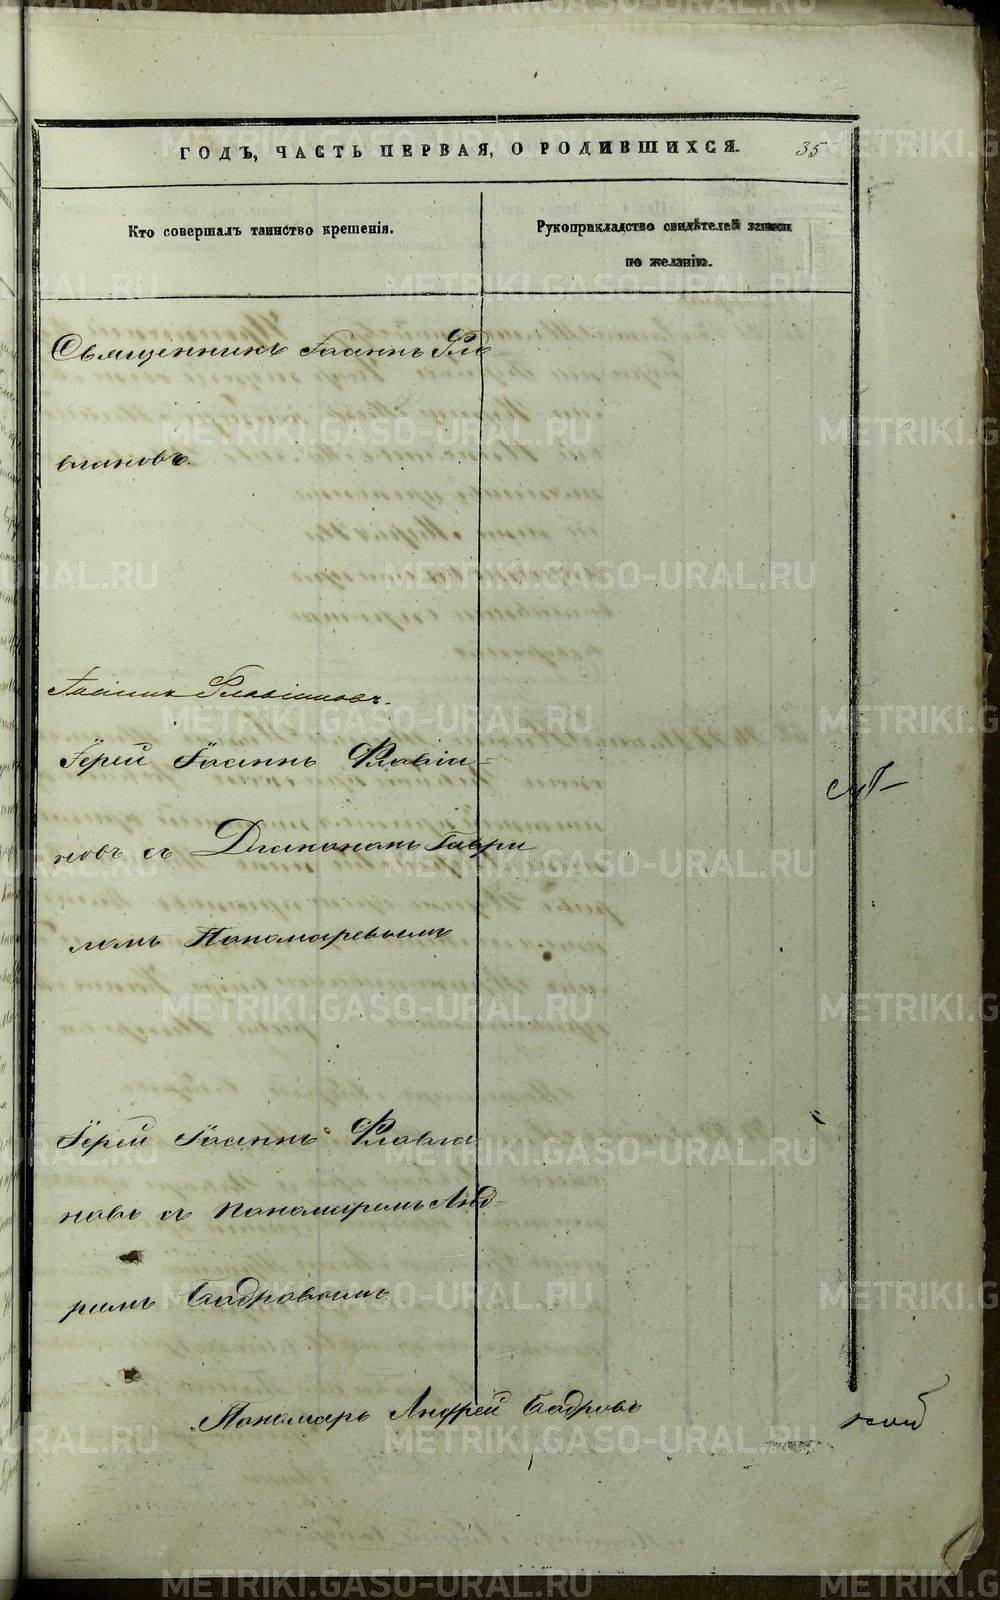 ГОДЪ, ЧАСТЬ ПЕРВАЯ, О РОДИВШИХСЯ. 35
Кто совершалъ таинство крещенія.
Рукоприкладство свидѣтелей записи
по желанію.
Священникъ Іоаннъ Фла
віановъ.
Іоаннъ Флавіановъ.
Іерей Іоаннъ Флавіа=
новъ съ Діакономъ Гаври
ломъ Пономаревымъ
Іерей Іоаннъ Флавіа
новъ съ пономаремъ Анд=
реемъ Бадровымъ
Пономарь Андрей Бадровъ
METRIKI.GASO-URAL.RU